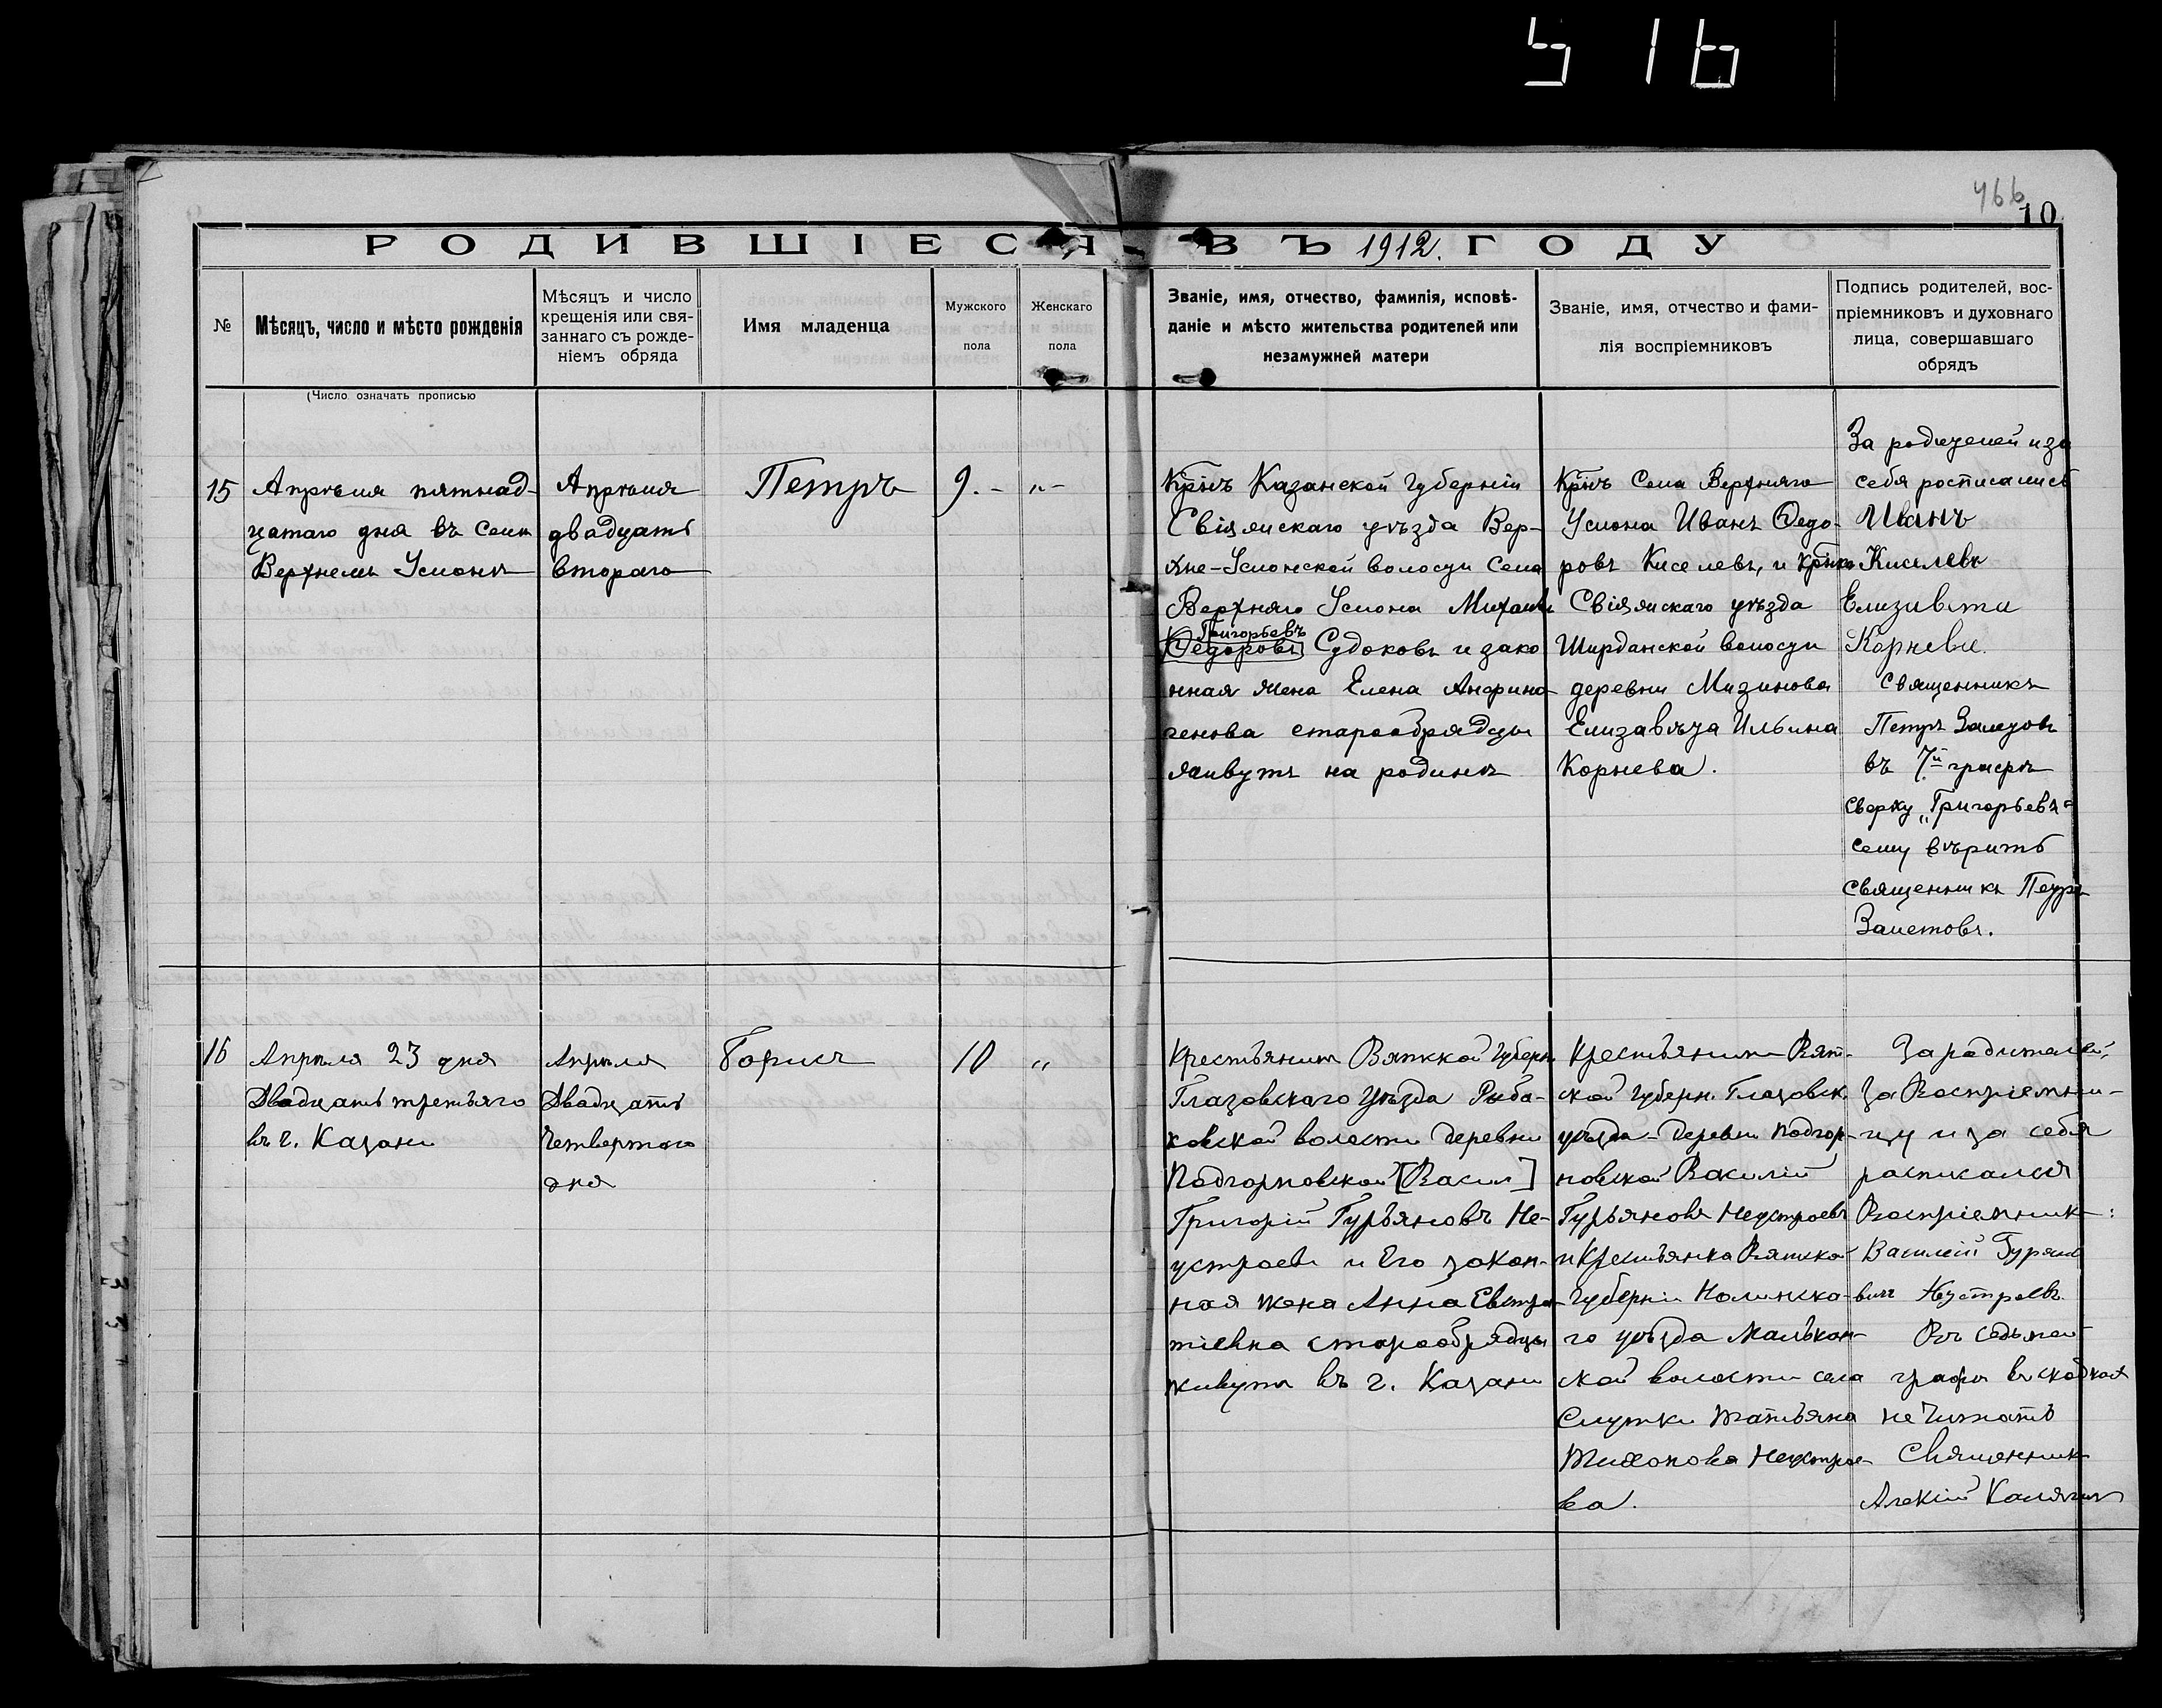 516
466
10
РОДИВШІЕСЯ ВЪ 1912. ГОДУ
№
Мѣсяцъ, число и мѣсто рожденія
Мѣсяцъ и число
крещенія или свя-
заннаго съ рожде-
ніемъ обряда
Имя младенца
Мужского
пола
Женскаго
пола
Званіе, имя, отчество, фамилія, исповѣ-
даніе и мѣсто жительства родителей или
незамужней матери
Званіе, имя, отчество и фами-
лія воспріемниковъ
Подпись родителей, вос-
пріемниковъ и духовнаго
лица, совершавшаго
обрядъ
(Число означать прописью
15
Апрѣля пятнад-
цатаго дня въ селѣ
Верхнемъ Услонѣ
Апрѣля
двадцать
втораго
Петръ
9. -
„ -
Кр͞нъ Казанской губерніи
Свіяжскаго уѣзда Вер-
хне-Услонской волости села
Верхняго Услона Михаилъ
Григорьевъ
[Ѳедоровъ] Судоковъ и зако
нная жена Елена Анфино-
генова старообрядцы
живутъ на родинѣ
Кр͞нъ села Верхняго
Услона Иванъ Ѳедо-
ровъ Киселевъ, и кр͞нка
Свіяжскаго уѣзда
Ширданской волости
деревни Мизинова
Елизавѣта Ильина
Корнева.
За родителей и за
себя росписались
Иванъ
Киселевъ
Елизавета
Корнева.
Священникъ
Петръ Залетовъ
въ 7й графѣ
сверху „Григорьевъ"
сему вѣрить
священникъ Петръ
Залетовъ.
16
Апрѣля 23 дня
Двадцать третьяго
въ г. Казани
Апрѣля
Двадцать
четвертаго
дня
Борисъ
10
„
Крестьянинъ Вятской губерн.
Глазовскаго уѣзда Рыба-
ковской волости деревни
Подгорновской [Васил]
Григорій Гурьяновъ Не-
устроевъ и Его закон-
ная жена Анна Евстра-
тіевна старообрядцы
живутъ въ г. Казани
Крестьянинъ Вят-
ской губерн. Глазовск.
уѣзда деревни Подгор-
новской Василій
Гурьяновъ Неустроевъ
и Крестьянка Вятской
губерніи Нолинска-
го уѣзда Малькан-
ской волости села
Слудки Татьяна
Тихонова Неустрое-
ва.
За родителей,
За Воспріемни-
цу и за себя
расписался
Воспріемникъ:
Василій Гурьяно
вичъ Неустроевъ.
Въ седьмой
графѣ въ скобках
не читать
Священникъ
Алексій Калягин